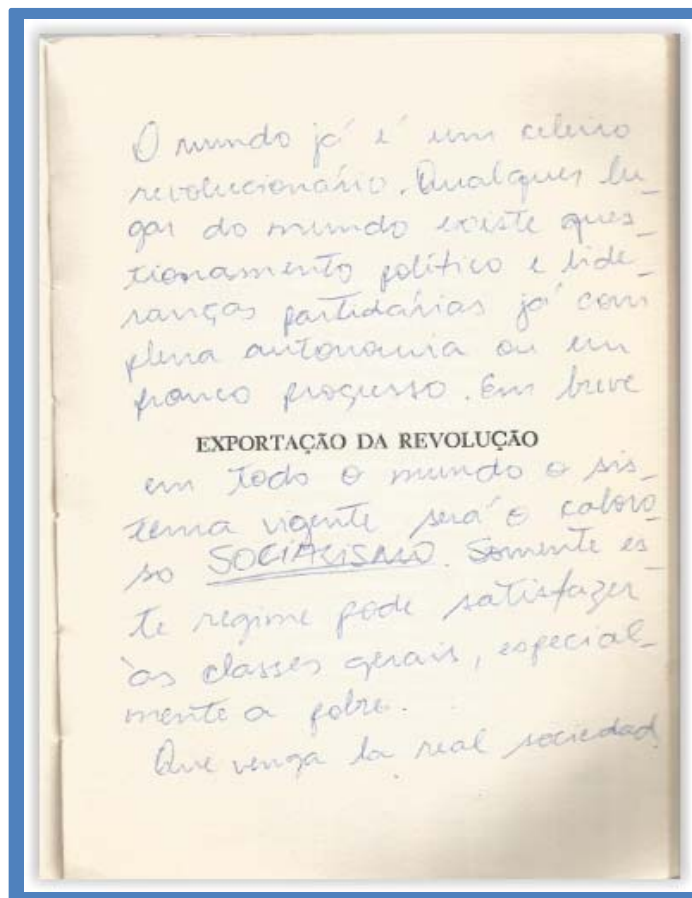 O mundo já é um celeiro
revolucionário. Qualquer lu_
gar do mundo existe ques_
tionamento político e lide_
ranças partidárias já com
plena autonomia ou em
franco progresso. Em breve
EXPORTAÇÃO DA REVOLUÇÃO
em todo o mundo o sis_
tema vigente será o caloro_
so SOCIALISMO. Somente es_
te regime pode satisfazer
às classes gerais, especial_
mente a pobre.
Que venga la real sociedad.